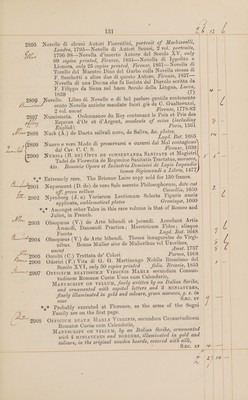 131
2895 Novelle di alcuni Autori Fiorentini, portrait of Machiavelli,
Londra, 1795—Novelle di Autori Senesi, 2 vol. portraits,
1796-98—Novella d'incerto Autore del Secolo XV, only
60 copies printed, Firenze, 1834—Novella di Ippolito e
Lionora, only 25 copies printed, Firenze, 1821—Novella di
Torello del Maestro Dino del Garbo colla Novella stessa di
F. Sacchetti e altre due di questo Autore, Firenze, 1827—
Novella di una Donna che fu liscista dal Diavolo scritta da
F. Filippo da Siena nel buon Secolo della Lingua, Lucca,
1859 (7)
2896 Novello. Libro di Novelle e di bel parlare gentile contenente
cento Novelle antiche mandate fuori già da C. Gualteruzzi,
2 vol. uncut Firenze, 1778-82
2897 Numismata. Ordonnance du Roy contenant le Poix et Prix des
Espèces d'Or et d'Argent, woodcuts of coins (including
English) Paris, 1541
2898 Nuck (A.) de Ductu salivali novo, de Saliva, &c. plates.
Lugd. Bat. 1685
2899 Nuovo e vero Modo di preservarsi e curarsi dal Mal contagioso
del Car. C. C. S. Firenze, 1680
2900
Tabul de Florentia de Regimine Sanitatis Tractatus, morocco,
Bononie Opera et Industria Dominici de Lapis Impendio
tamen Sigismundi a Libris, 1477
*** Extremely rare. The Brienne Laire copy sold for 150 francs.
2901 Nuyssement (D. de) de vero Sale secreto Philosophorum, date cut
off, green vellum Cassellis, 1650
2902 Nyenborg (J. a) Variarum Lectionum Selecta Figuris æneis
applicata, emblematical plates Groningæ, 1660
*** Amongst other Tales in this rare volume is that of Romeo and
Juliet, in French.
2903 Obsequens (V.) de Arte bibendi et jocandi. Accedunt Artis
Amandi, Dansandi Practica; Meretricum Fides; aliaque
Faceta Lugd. Bat. 1648
2904 Obsopœus (V.) de Arte bibendi. Theses inaugurales de Virginibus.
Bonus Mulier sive de Mulieribus vel Uxoribus,
uncut Amst. 1757
2905 Occulti (C.) Trattato de' Colori Parma, 1568
2906 Odorici (F.) Vita di G. G. Martinengo Nobile Bresciano del
Secolo XVI, only 50 copies printed folio. Brescia, 1855
2907 OFFICIUM BEATISSIMÆ VIRGINIS MARIÆ secundum Consuetudinem
Romanæ Curiæ Unea cum Calendario,
MANUSCRIPT ON VELLUM, finely written by an Italian Scribe,
and ornamented with capital letters and 3 MINIATURES,
finely illuminated in gold and colours, green morocco, g. e.
SÆC. XV
*** Probably executed at Florence, as the arms of the Segni
Family are on the first page.
2908 OFFICIUM BEATÆ MARIÆ VIRGINIS, secundum Consuetudinem
Romanæ Curiæ cum Calendario,
MANUSCRIPT ON VELLUM, by an Italian Scribe, ornamented
with 4 MINIATURES and BORDERS, illuminated in gold and
colours, in the original wooden boards, covered with silk,
SÆC. XV